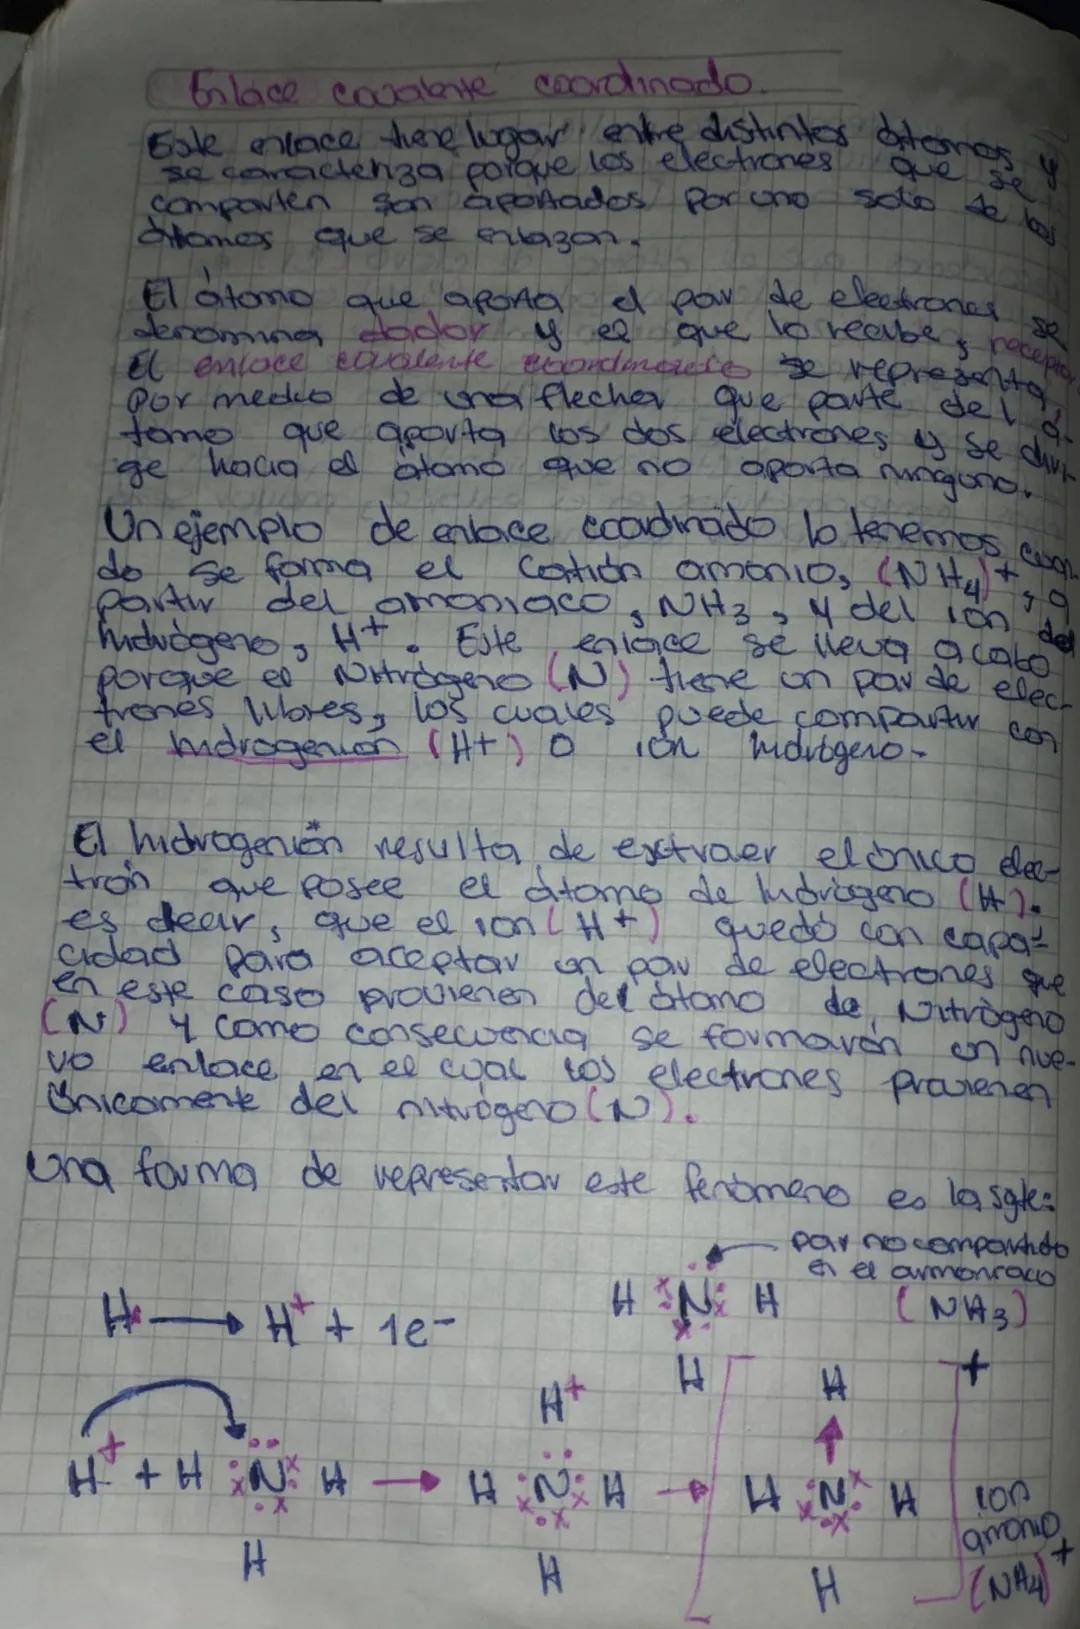 Enlace covalente coordinado.
Este enlace tiene lugar entre distintos átomos y
se caracteriza porque los electrones que se
comparten son aportados por uno solo de los
átomos que se enlazan.
El átomo que aporta el par de electrones se
denomina dador y el que lo recibe, receptor
El enlace covalente coordinado se representa
por medio de una flecha que parte del á-
tomo que aporta los dos electrones y se diri-
ge hacia el átomo que no aporta ninguno.
Un ejemplo de enlace coordinado lo tenemos cuan-
do se forma el catión amonio, (NH4)+, a
partir del amoniaco, NH3, y del ion del
hidrógeno, H+. Este enlace se lleva acabo
porque el Nitrógeno (N) tiene un par de elec-
trones libres, los cuales puede compartir con
el hidrogenión (H+) o ión hidrógeno.
El hidrogenión* resulta de extraer el único elec-
trón que posee el átomo de hidrógeno (H).
es decir, que el ion (H+) quedó con capa-
cidad para aceptar un par de electrones que
en este caso provienen del átomo de Nitrógeno
(N) y como consecuencia se formarón un nue-
vo enlace en el cual los electrones provienen
únicamente del nitrógeno (N).
Una forma de representar este fenómeno es la sgte:
par no compartido
en el ammoniaco
(NH3)
H N H
H
H → H+ + 1e-
H+ + H N H → H N H → [H N H]+
H+
H
H
H
H
ion
amonio
(NH4)+